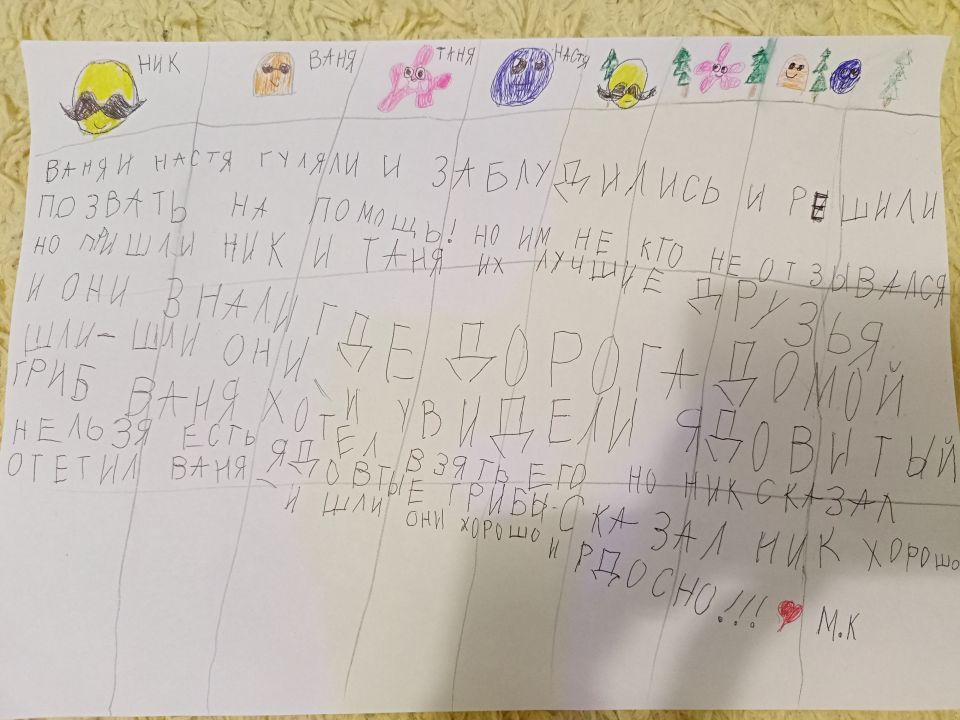 НИК ВАНЯ ТАНЯ НАСТЯ
ВАНЯ И НАСТЯ ГУЛЯЛИ И ЗАБЛУДИЛИСЬ И РЕШИЛИ
ПОЗВАТЬ НА ПОМОЩЬ! НО ИМ НЕ КТО НЕ ОТЗЫВАЛСЯ
НО ПРИШЛИ НИК И ТАНЯ ИХ ЛУЧШИЕ ДРУЗЬЯ
И ОНИ ВНАЛИ ГДЕ ДОРОГА ДОМОЙ
ШЛИ-ШЛИ ОНИ И УВИДЕЛИ ЯДОВИТЫЙ
ГРИБ ВАНЯ ХОТЕЛ ВЗЯТЬ ЕГО НО НИК СКАЗАЛ
НЕЛЬЗЯ ЕСТЬ ЯДОВТЫЕ ГРИБЫ-СКАЗАЛ НИК ХОРОШО
ОТЕТИЛ ВАНЯ И ШЛИ ОНИ ХОРОШО И РДОСНО!!!
М.К